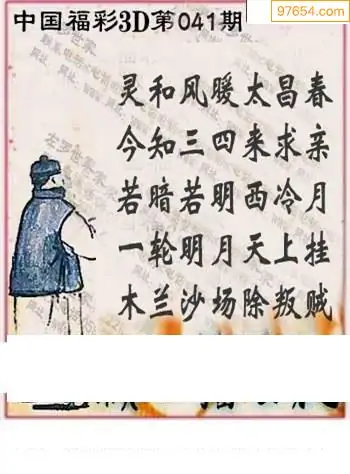 97654.com
中国福彩3D第041期
灵和风暖太昌春
今知三四来求亲
若暗若明西冷月
一轮明月天上挂
木兰沙场除叛贼